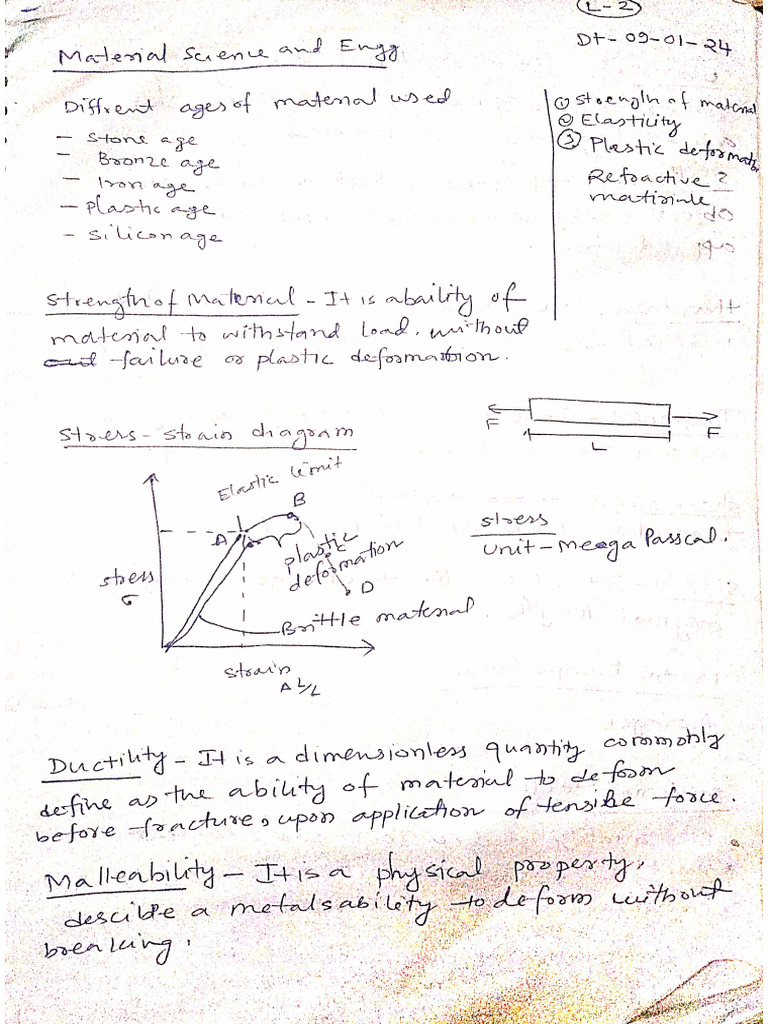 L-2
Dt-09-01-24
Material Science and Engg
Diffrent ages of material used
- Stone age
- Bronze age
- Iron age
- Plastic age
- Silicon age
① Strength of material
② Elasticity
③ Plastic deformation
Refractive ?
matiriale
Strength of Material - It is abaility of
material to withstand load. without
failure or plastic deformation.
F
F
L
Stress - strain diagram
Elastic limit
B
A
plastic
deformation
D
stress
σ
Brittle material
strain
Δ L/L
stress
Unit - Meega Passcal.
Ductility - It is a dimensionless quantity commonly
define as the ability of material to deform
before fracture, upon application of tensile force.
Malleability - It is a physical property,
descible a metals ability to deform without
breaking.